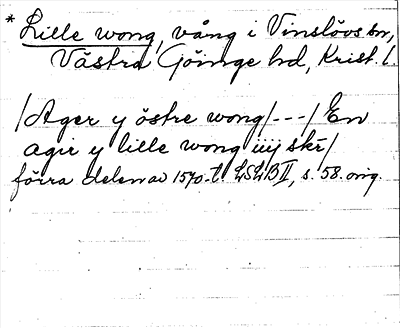 * Lille wong, vång i Vinslövs sn,
Västra Göinge hd, Krist. l.
/Ager y östre wong/---/En
agir y lille wong iiij skr/
förra delen av 1570-t. LSLB II, s. 58. orig.